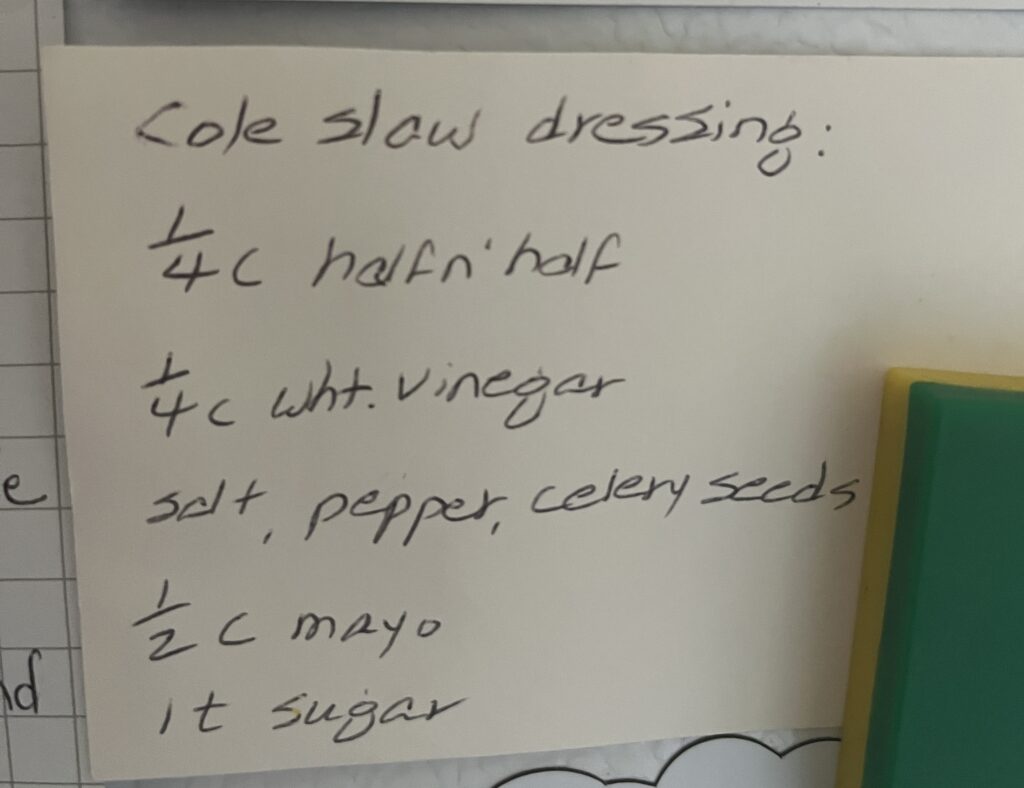 Cole slaw dressing:
1/4 c half n' half
1/4 c wht. vinegar
salt, pepper, celery seeds
1/2 c mayo
1 t sugar
e
nd